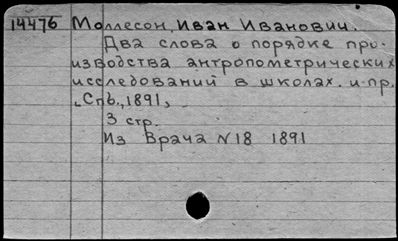 14476 Моллесон, Иван Иванович.
Два слова о порядке про-
изводства антропометрических
исследований в школах. и пр.
Спб., 1891,
3 стр.
Из Врача N18 1891